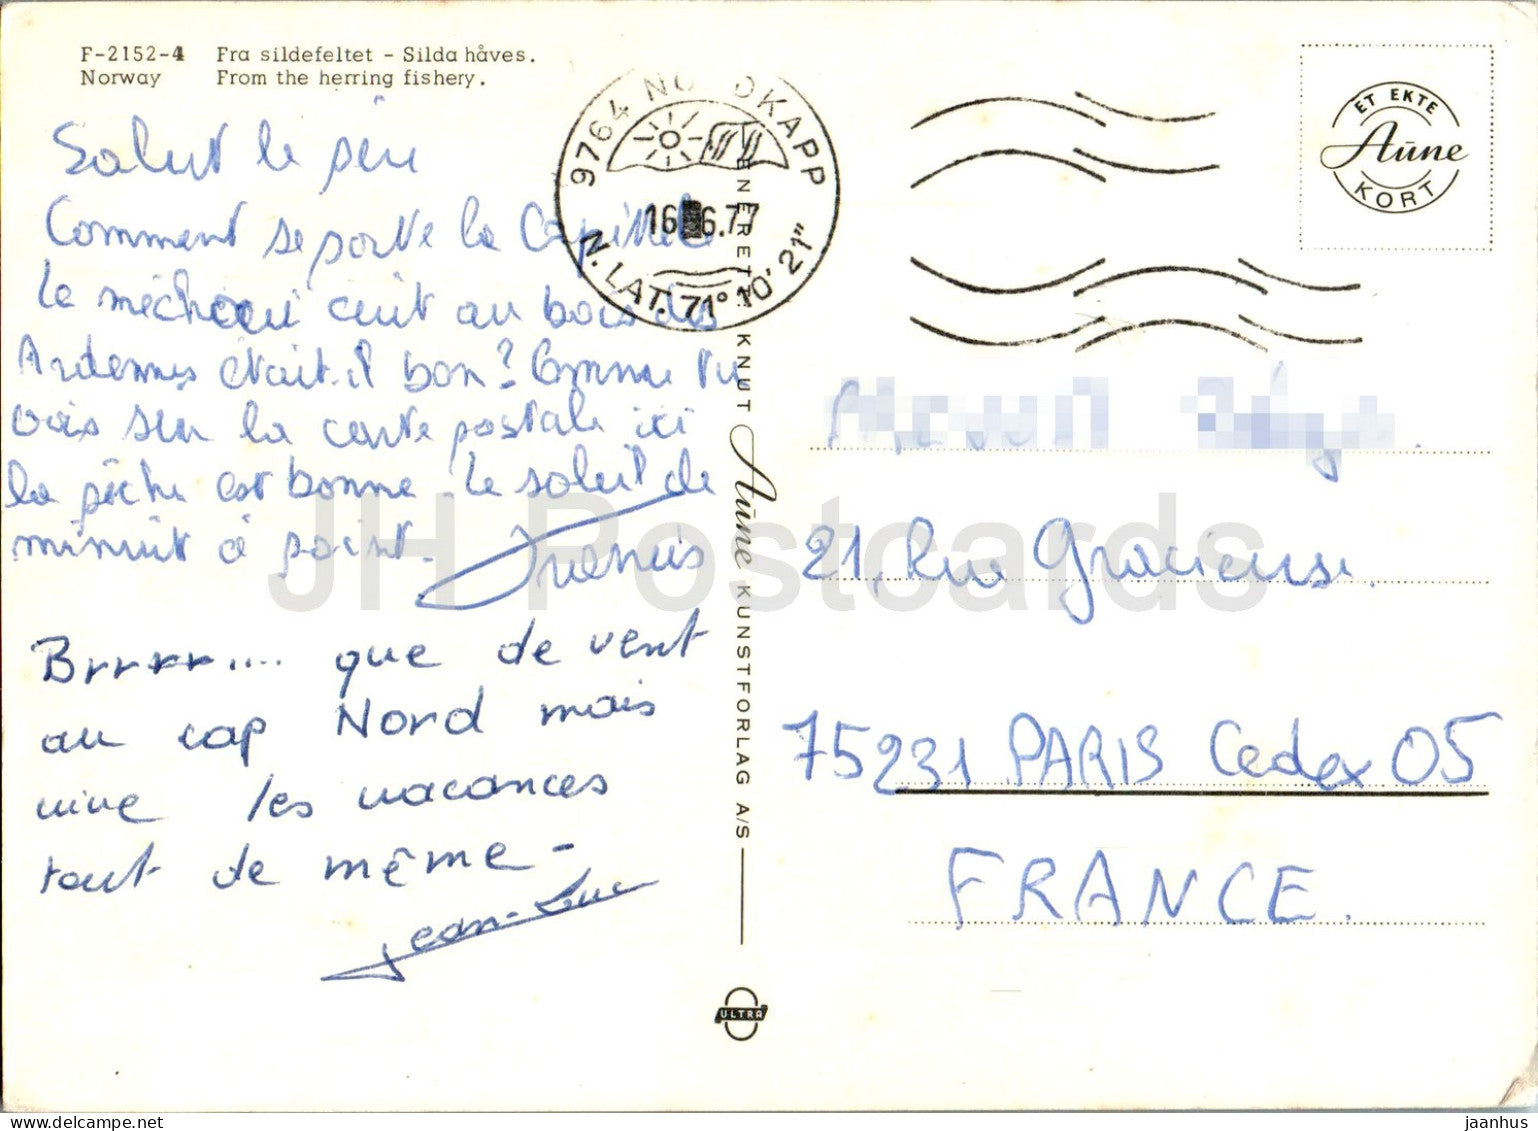 F-2152-4 Fra sildefeltet - Silda håves.
Norway From the herring fishery.
Salut le père
Comment se porte la Capitale
Le méchoui cuit au bois des
Ardennes était-il bon? Comme tu
vois sur la carte postale ici
la pêche est bonne. Le soleil de
minuit à point.
Francis
Brrrrr.... que de vent
au cap Nord mais
vive les vacances
tout de même -
Jean-Luc
9764 NORDKAPP
16 6.77
N. LAT. 71° 10' 21"
ENERETT: KNUT Aune KUNSTFORLAG A/S
ULTRA
ET EKTE
Aune
KORT
21, Rue Gracieuse.
75231 PARIS Cedex 05
FRANCE.
JH Postcards
delcampe.net
jaanhus